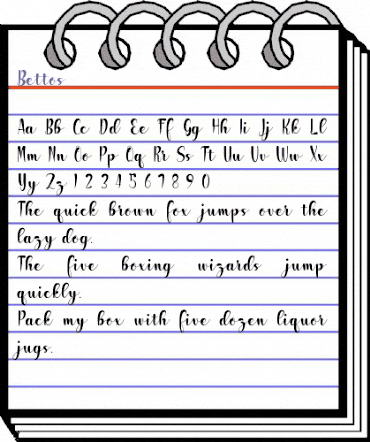 Bettos
Aa Bb Cc Dd Ee Ff Gg Hh Ii Jj Kk Ll
Mm Nn Oo Pp Qq Rr Ss Tt Uu Vv Ww Xx
Yy Zz 1 2 3 4 5 6 7 8 9 0
The quick brown fox jumps over the
lazy dog.
The five boxing wizards jump
quickly.
Pack my box with five dozen liquor
jugs.